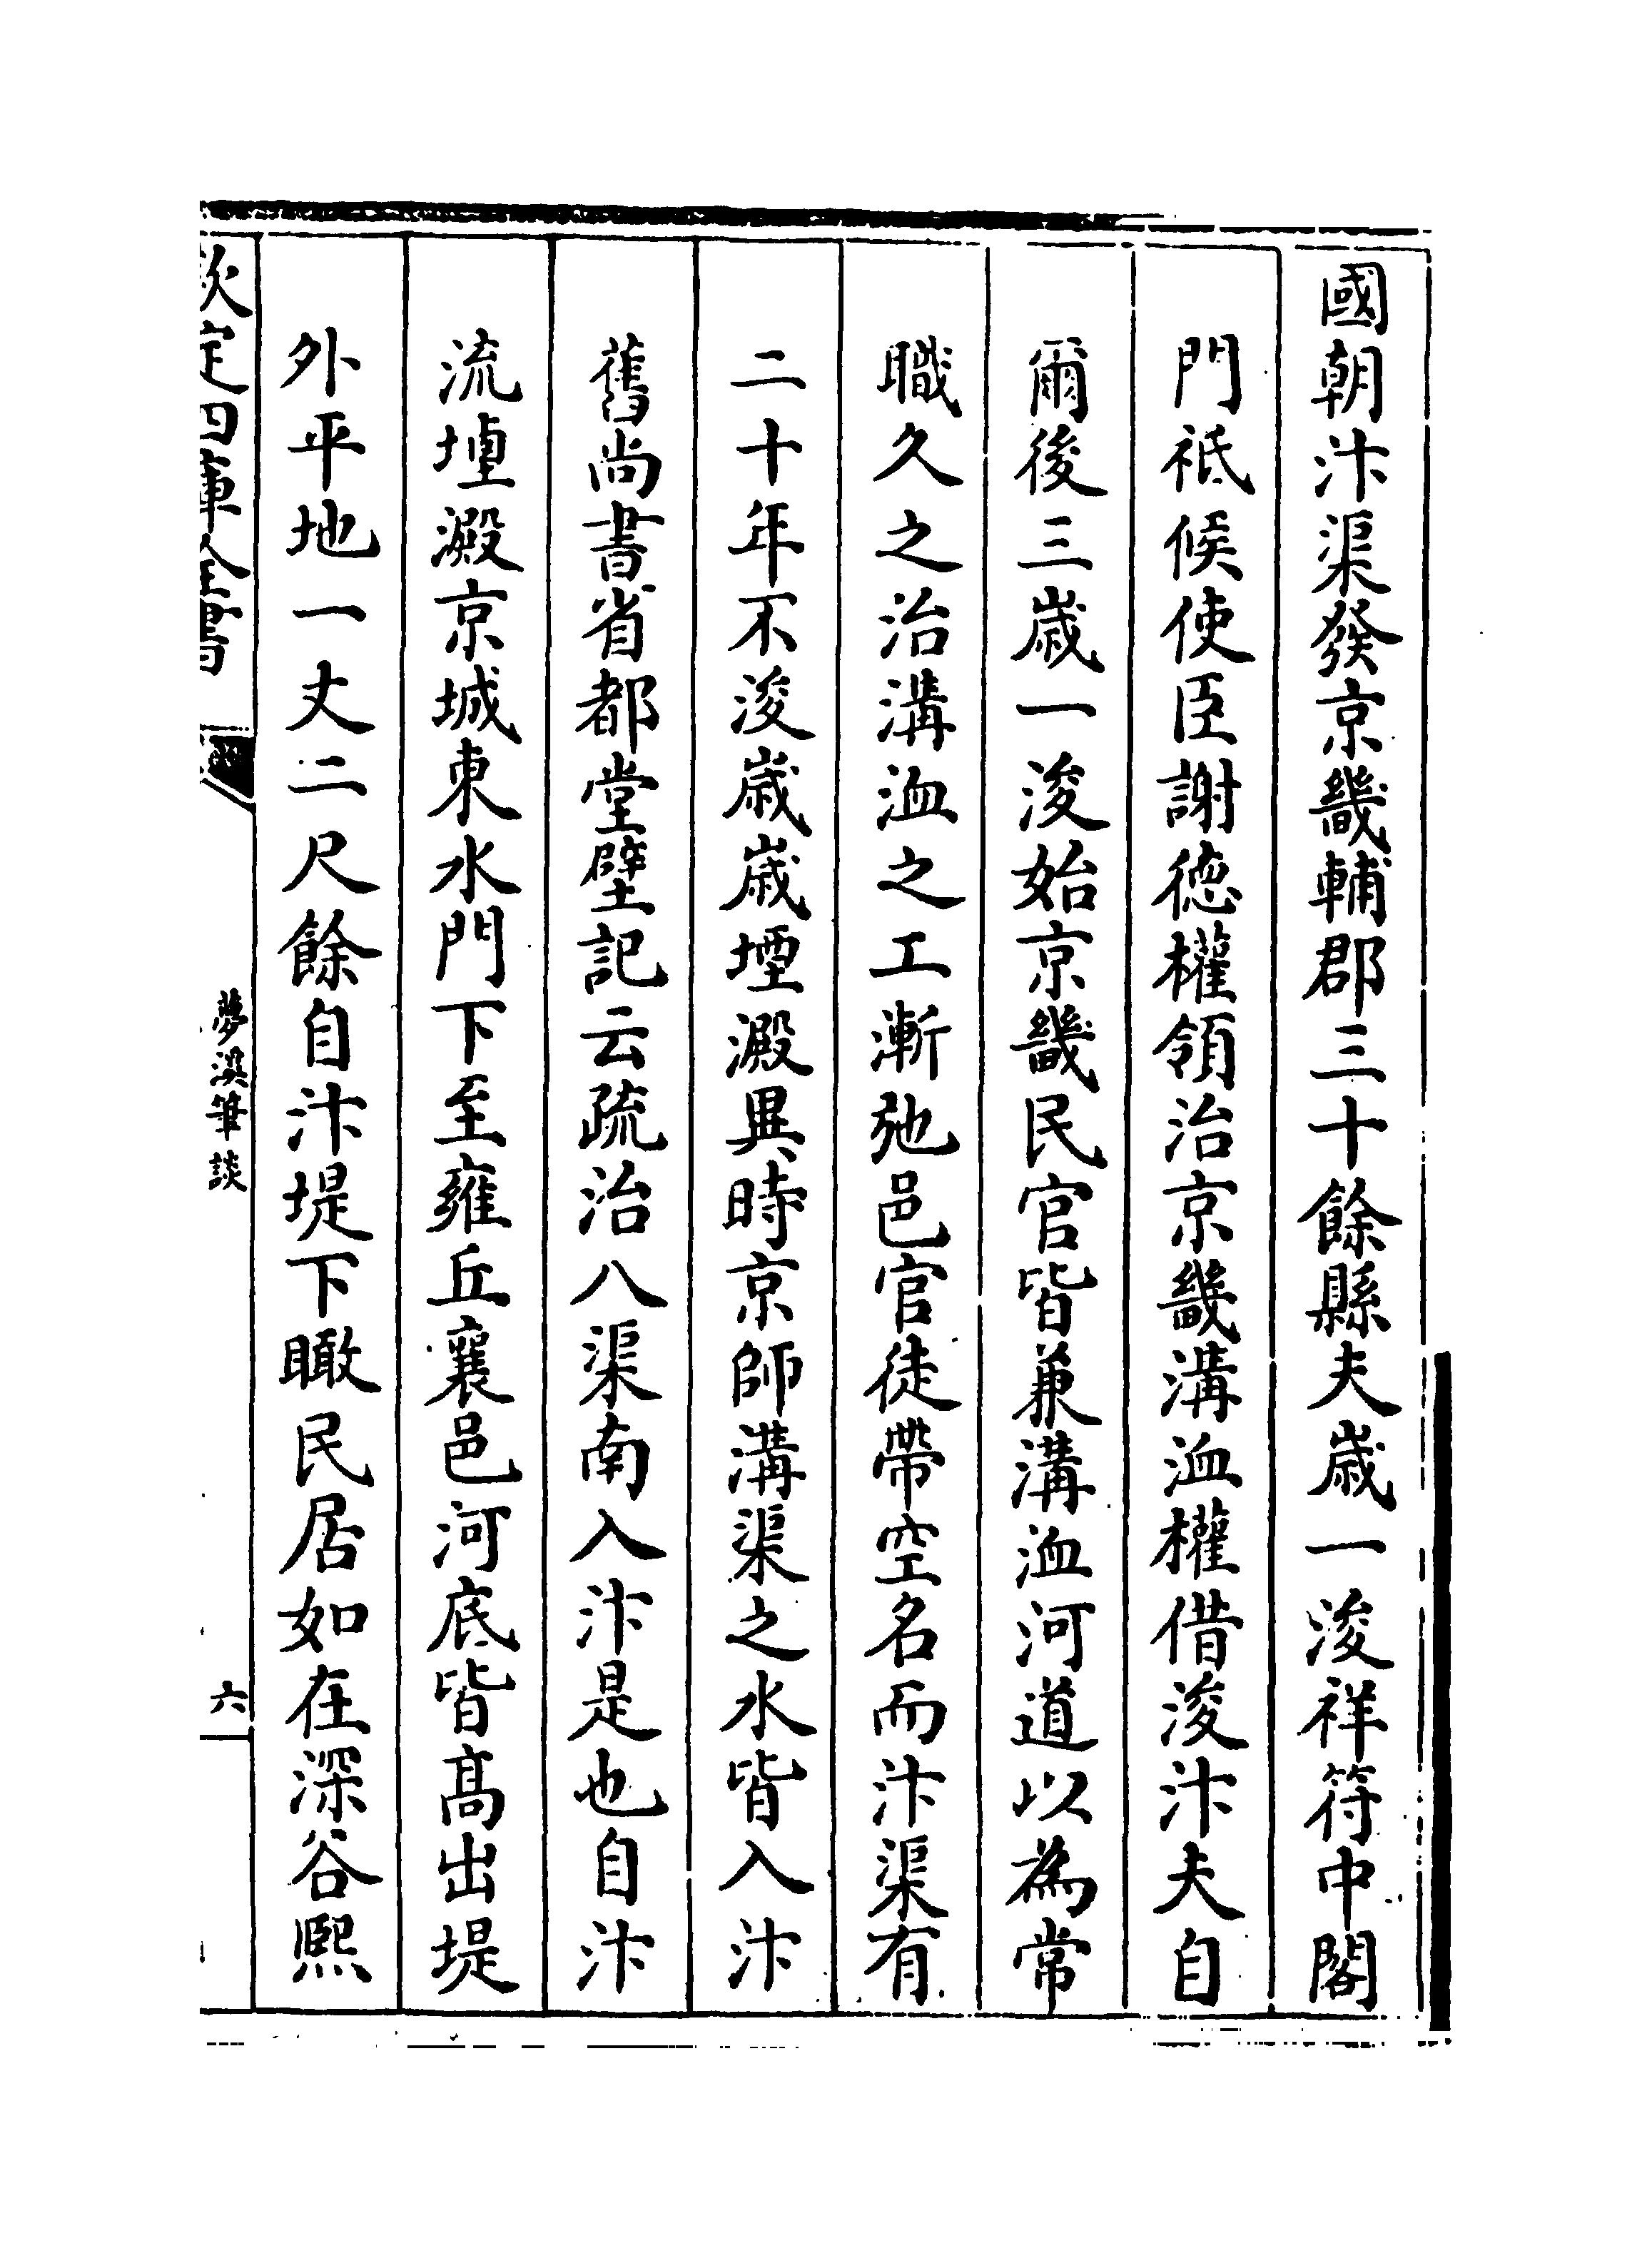 國朝汴渠發京畿輔郡三十餘縣夫歲一浚祥符中閣
門祇候使臣謝徳權領治京畿溝洫權借浚汴夫自
爾後三歲一浚始京畿民官皆兼溝洫河道以為常
職久之治溝洫之工漸弛邑官徒帶空名而汴渠有
二十年不浚歲歲堙澱異時京師溝渠之水皆入汴
舊尚書省都堂壁記云疏治八渠南入汴是也自汴
流堙澱京城東水門下至雍丘襄邑河底皆髙出堤
外平地一丈二尺餘自汴堤下瞰民居如在深谷熙
欽定四庫全書
夢溪筆談
六